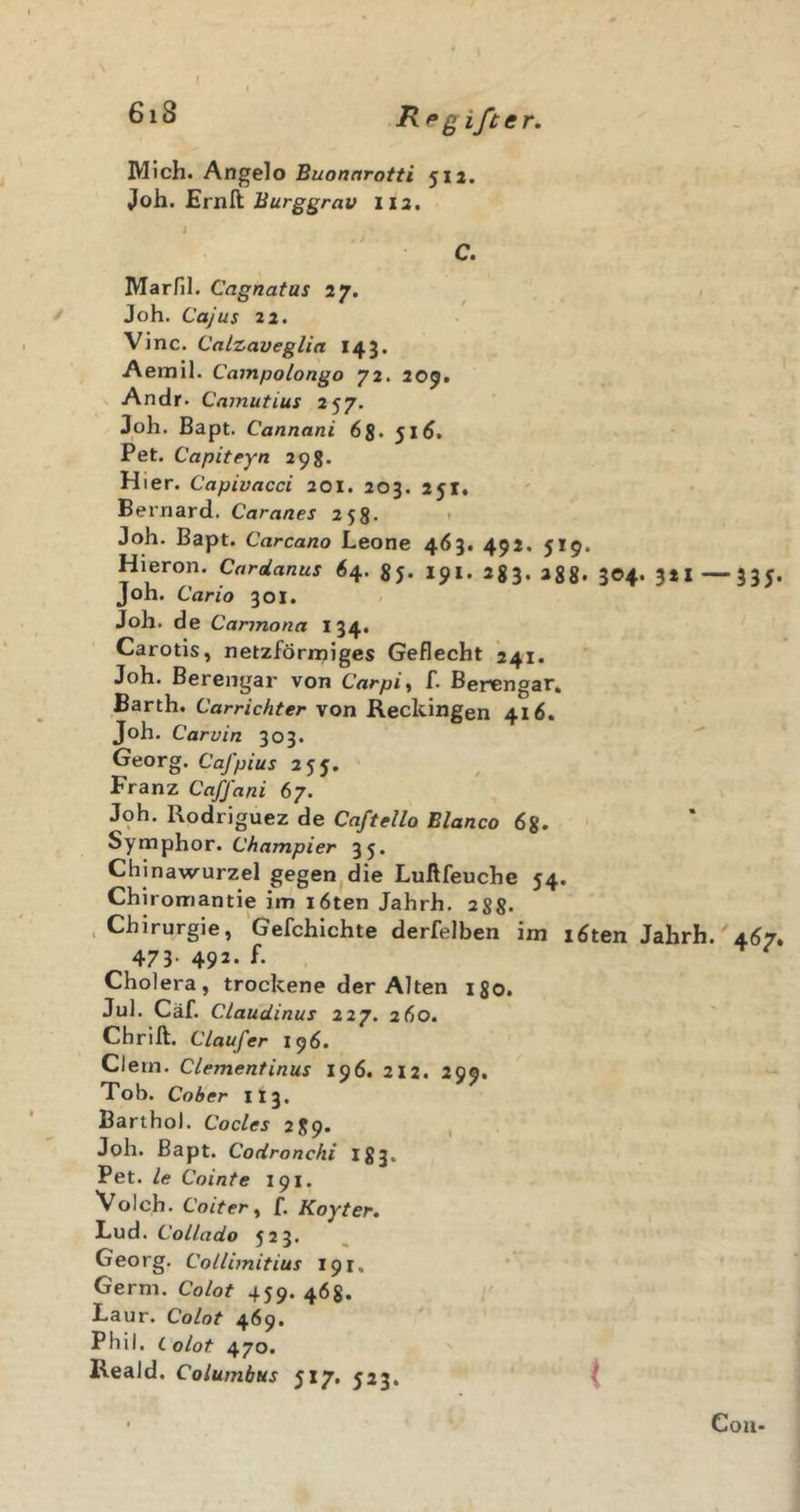 618
Regiſter.
Mich. Angelo Buonarotti 512.
Joh. Ernſt Burggrav 112.
C.
Marſil. Cagnatus 27.
Joh. Cajus 22.
Vinc. Calzaveglia 143.
Aemil. Campolongo 72. 209.
Andr. Camutius 257.
Joh. Bapt. Cannani 68. 516.
Pet. Capiteyn 298.
Hier. Capivacci 201. 203. 251.
Bernard. Caranes 258.
Joh. Bapt. Carcano Leone 463. 492. 519.
Hieron. Cardanus 64. 85. 191. 283. 288. 304. 321 — 335.
Joh. Cario 301.
Joh. de Carmona 134.
Carotis, netzförmiges Geflecht 241.
Joh. Berengar von Carpi, ſ. Berengar.
Barth. Carrichter von Reckingen 416.
Joh. Carvin 303.
Georg. Caſpius 255.
Franz Caſſani 67.
Joh. Rodriguez de Caſtello Blanco 68.
Symphor. Champier 35.
Chinawurzel gegen die Luſtſeuche 54.
Chiromantie im 16ten Jahrh. 288.
Chirurgie, Geſchichte derſelben im 16ten Jahrh. 467.
473. 492. f.
Cholera, trockene der Alten 180.
Jul. Cäſ. Claudinus 227. 260.
Chriſt. Clauſer 196.
Clem. Clementinus 196. 212. 299.
Tob. Cober 113.
Barthol. Cocles 289.
Joh. Bapt. Codronchi 183.
Pet. le Cointe 191.
Volch. Coiter, ſ. Koyter.
Lud. Collado 523.
Georg. Collimitius 191.
Germ. Colot 459. 468.
Laur. Colot 469.
Phil. Colot 470.
Reald. Columbus 517. 523.
Con-